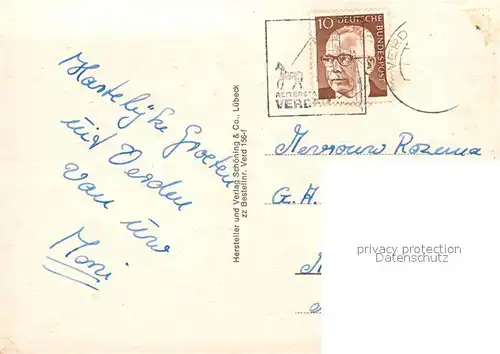 Hartelijke Groeten
uit Verden
van uw
Moni
Hersteller und Verlag Schöning & Co., Lübeck
zz Bestellnr. Verd 156-f
10 DEUTSCHE BUNDESPOST
REITERSTADT
VERD
VERD
Mevrouw Rozema
G.A.
privacy protection
Datenschutz